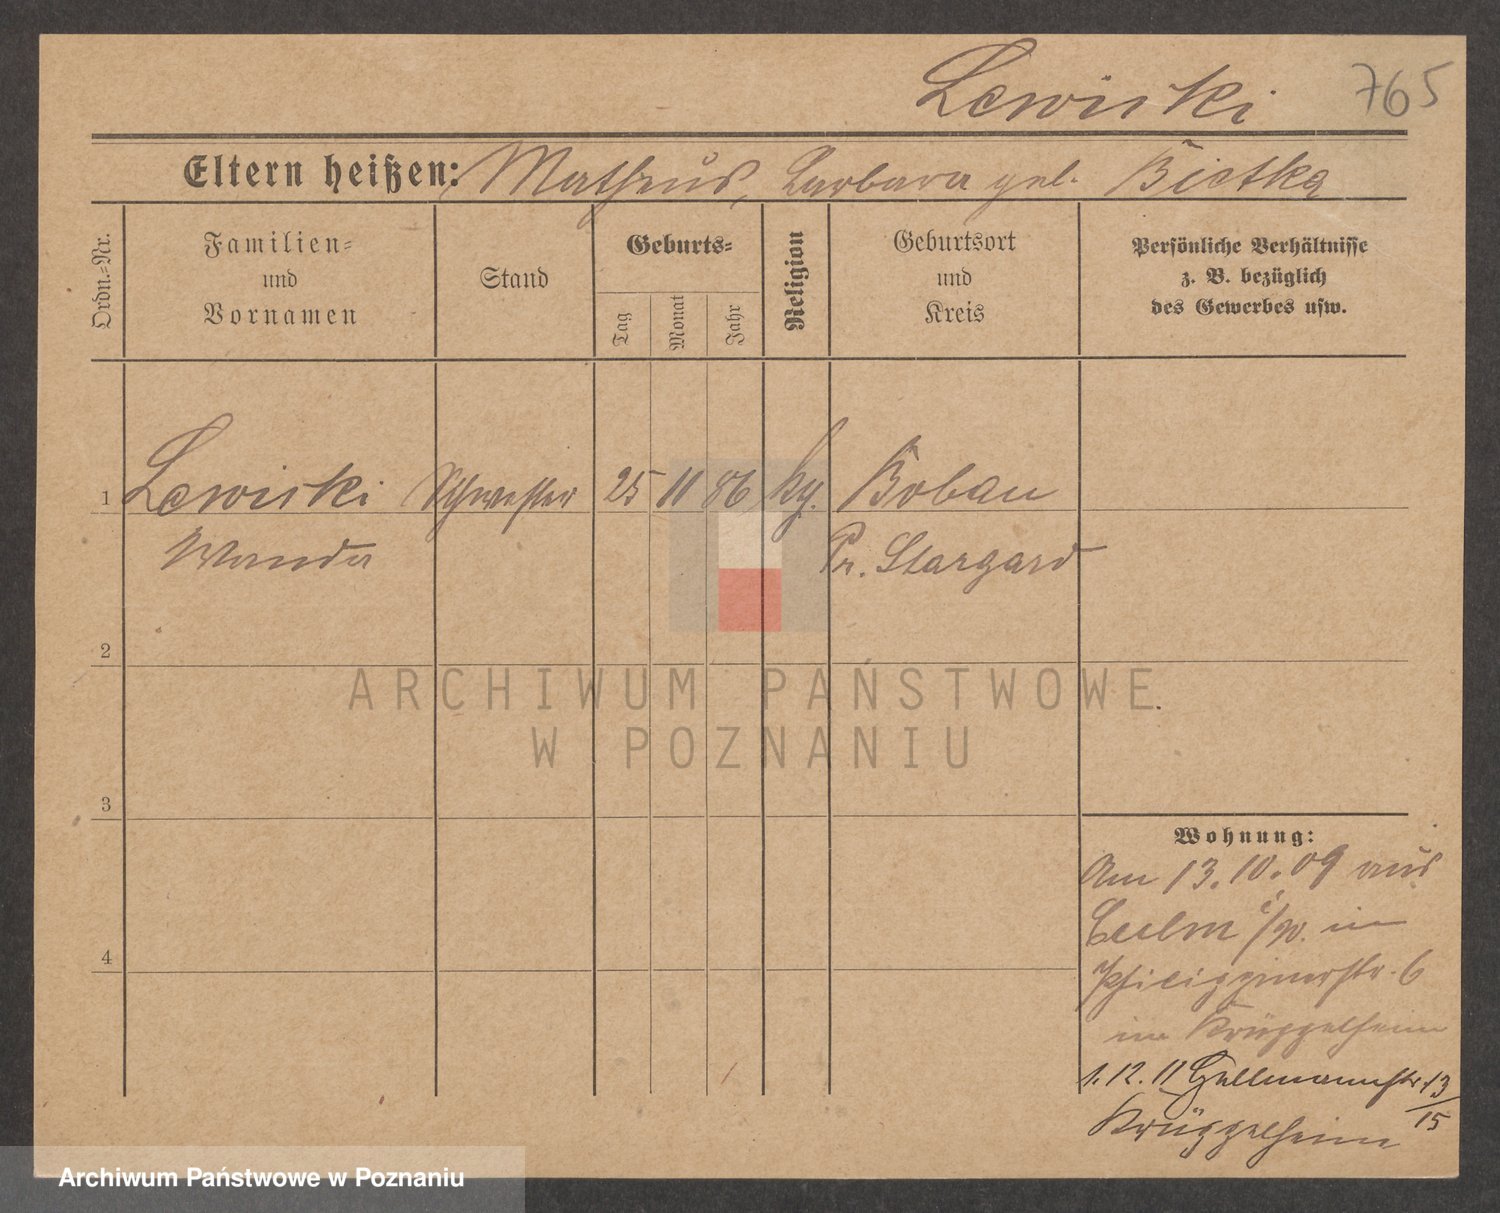 Lewiski 765
Eltern heißen: Matheus, Barbara geb. Bietka
Ordn.-Nr.
Familien-
und
Vornamen
Stand
Geburts-
Tag
Monat
Jahr
Religion
Geburtsort
und
Kreis
Persönliche Verhältnisse
z. B. bezüglich
des Gewerbes usw.
1 Lewiski Schwester 25 11 86 kg. Bobau
Wanda Pr. Stargard
2
ARCHIWUM PAŃSTWOWE
W POZNANIU
3
Wohnung:
Am 13.10.09 aus
Culm i/W. in
Philippinenstr. 6
im Krüppelheim
4
1.12.11 Hellmannstr 13/15
Krüppelheim
Archiwum Państwowe w Poznaniu